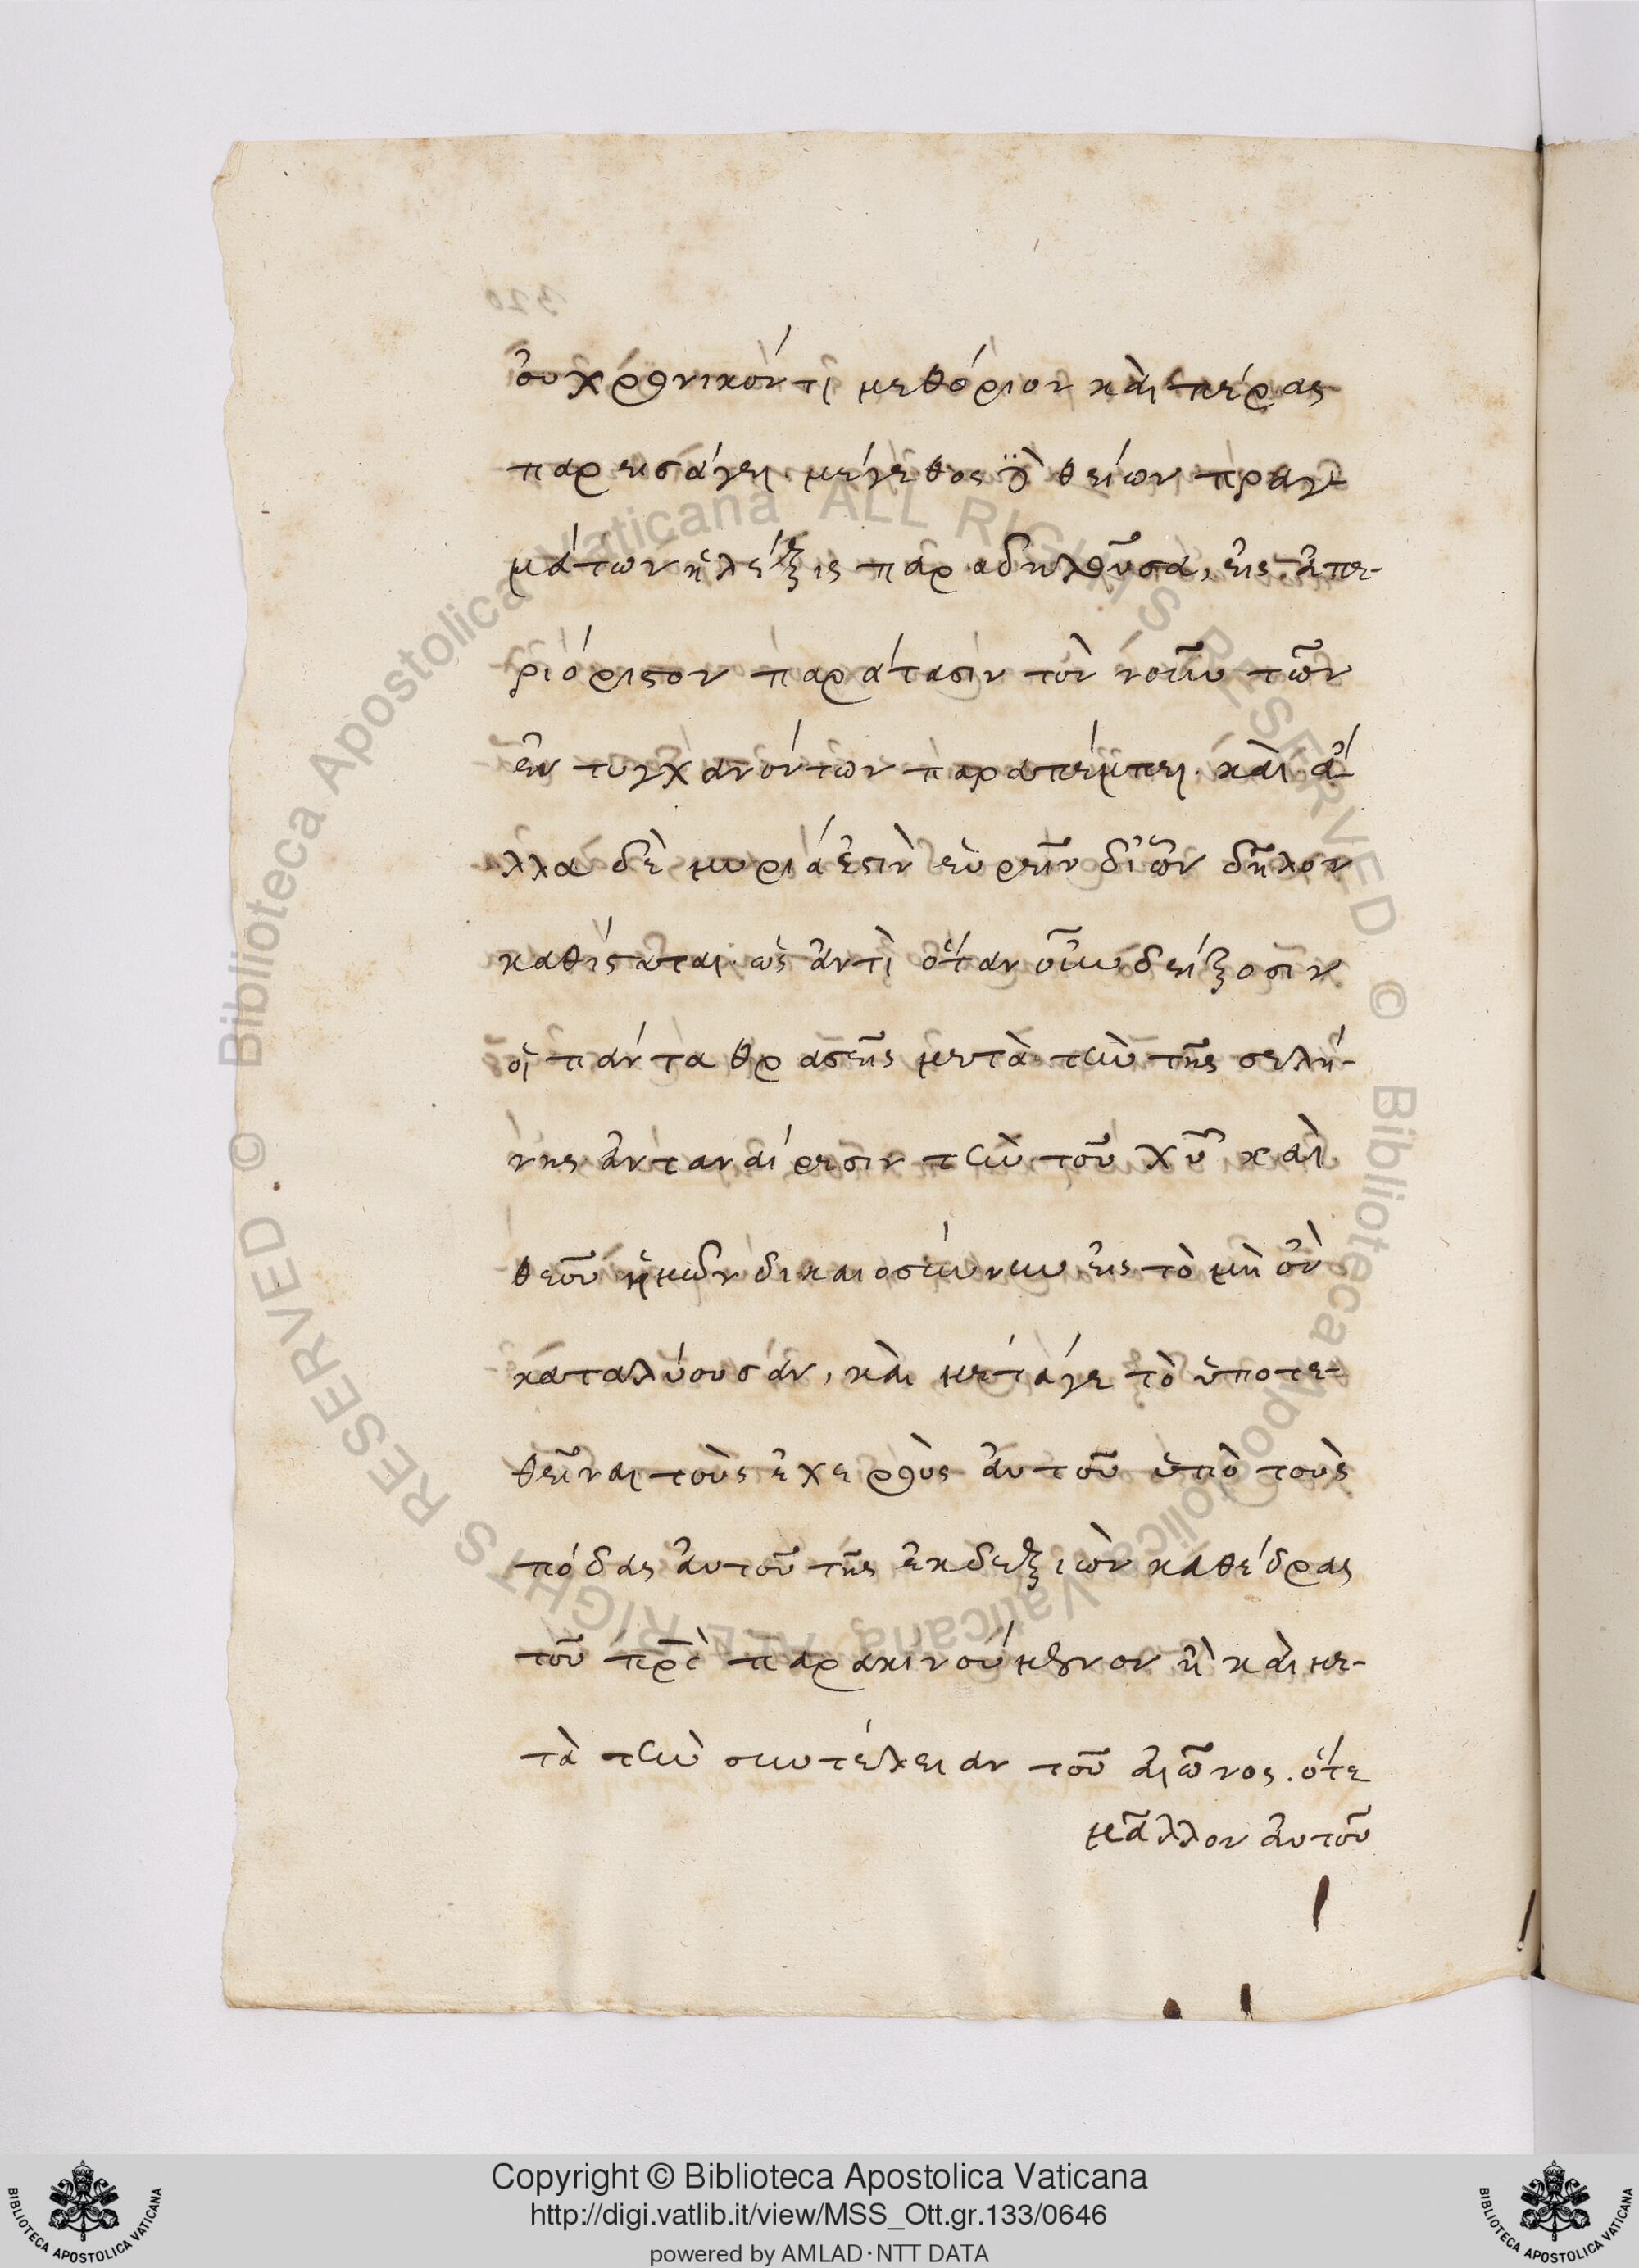 οὐ χρονικόν τι μεθόριον καὶ πέρας
παρεισάγει. μέγεθος θείων πραγ-
μάτων ἡ λέξις παραδηλοῦσα, εἰς ἀπε-
ριόριστον παράτασιν τὸν νοῦν τῶν
ἐντυγχανόντων παραπέμπει. καὶ ἄ-
λλα δὲ μυρία ἐστὶν εὑρεῖν δι' ὧν δῆλον
καθίσταται. ὡς ἀντὶ ὅταν οὖν δείξοσιν
οἱ πάντα θρασεῖς μετὰ τὴν τῆς σελή-
νης ἀνταναίρεσιν τὴν τοῦ χυ καὶ
θεοῦ ἡμῶν δικαιοσύνην εἰς τὸ μὴ ὂν
καταλύουσαν, καὶ μετάγε τὸ ὑποτε-
θεῖναι τοὺς ἐχθροὺς αὐτοῦ ὑπὸ τοὺς
πόδας αὐτοῦ τῆς ἐκ δεξιῶν καθέδρας
τοῦ πρς παρακινούμενον ἢ καὶ με-
τὰ τὴν συντέλειαν τοῦ αἰῶνος. ὅτε
μᾶλλον αὐτοῦ
320
Copyright © Biblioteca Apostolica Vaticana
http://digi.vatlib.it/view/MSS_Ott.gr.133/0646
powered by AMLAD·NTT DATA
BIBLIOTECA APOSTOLICA VATICANA
BIBLIOTECA APOSTOLICA VATICANA
© Biblioteca Apostolica Vaticana ALL RIGHTS RESERVED
© Biblioteca Apostolica Vaticana ALL RIGHTS RESERVED